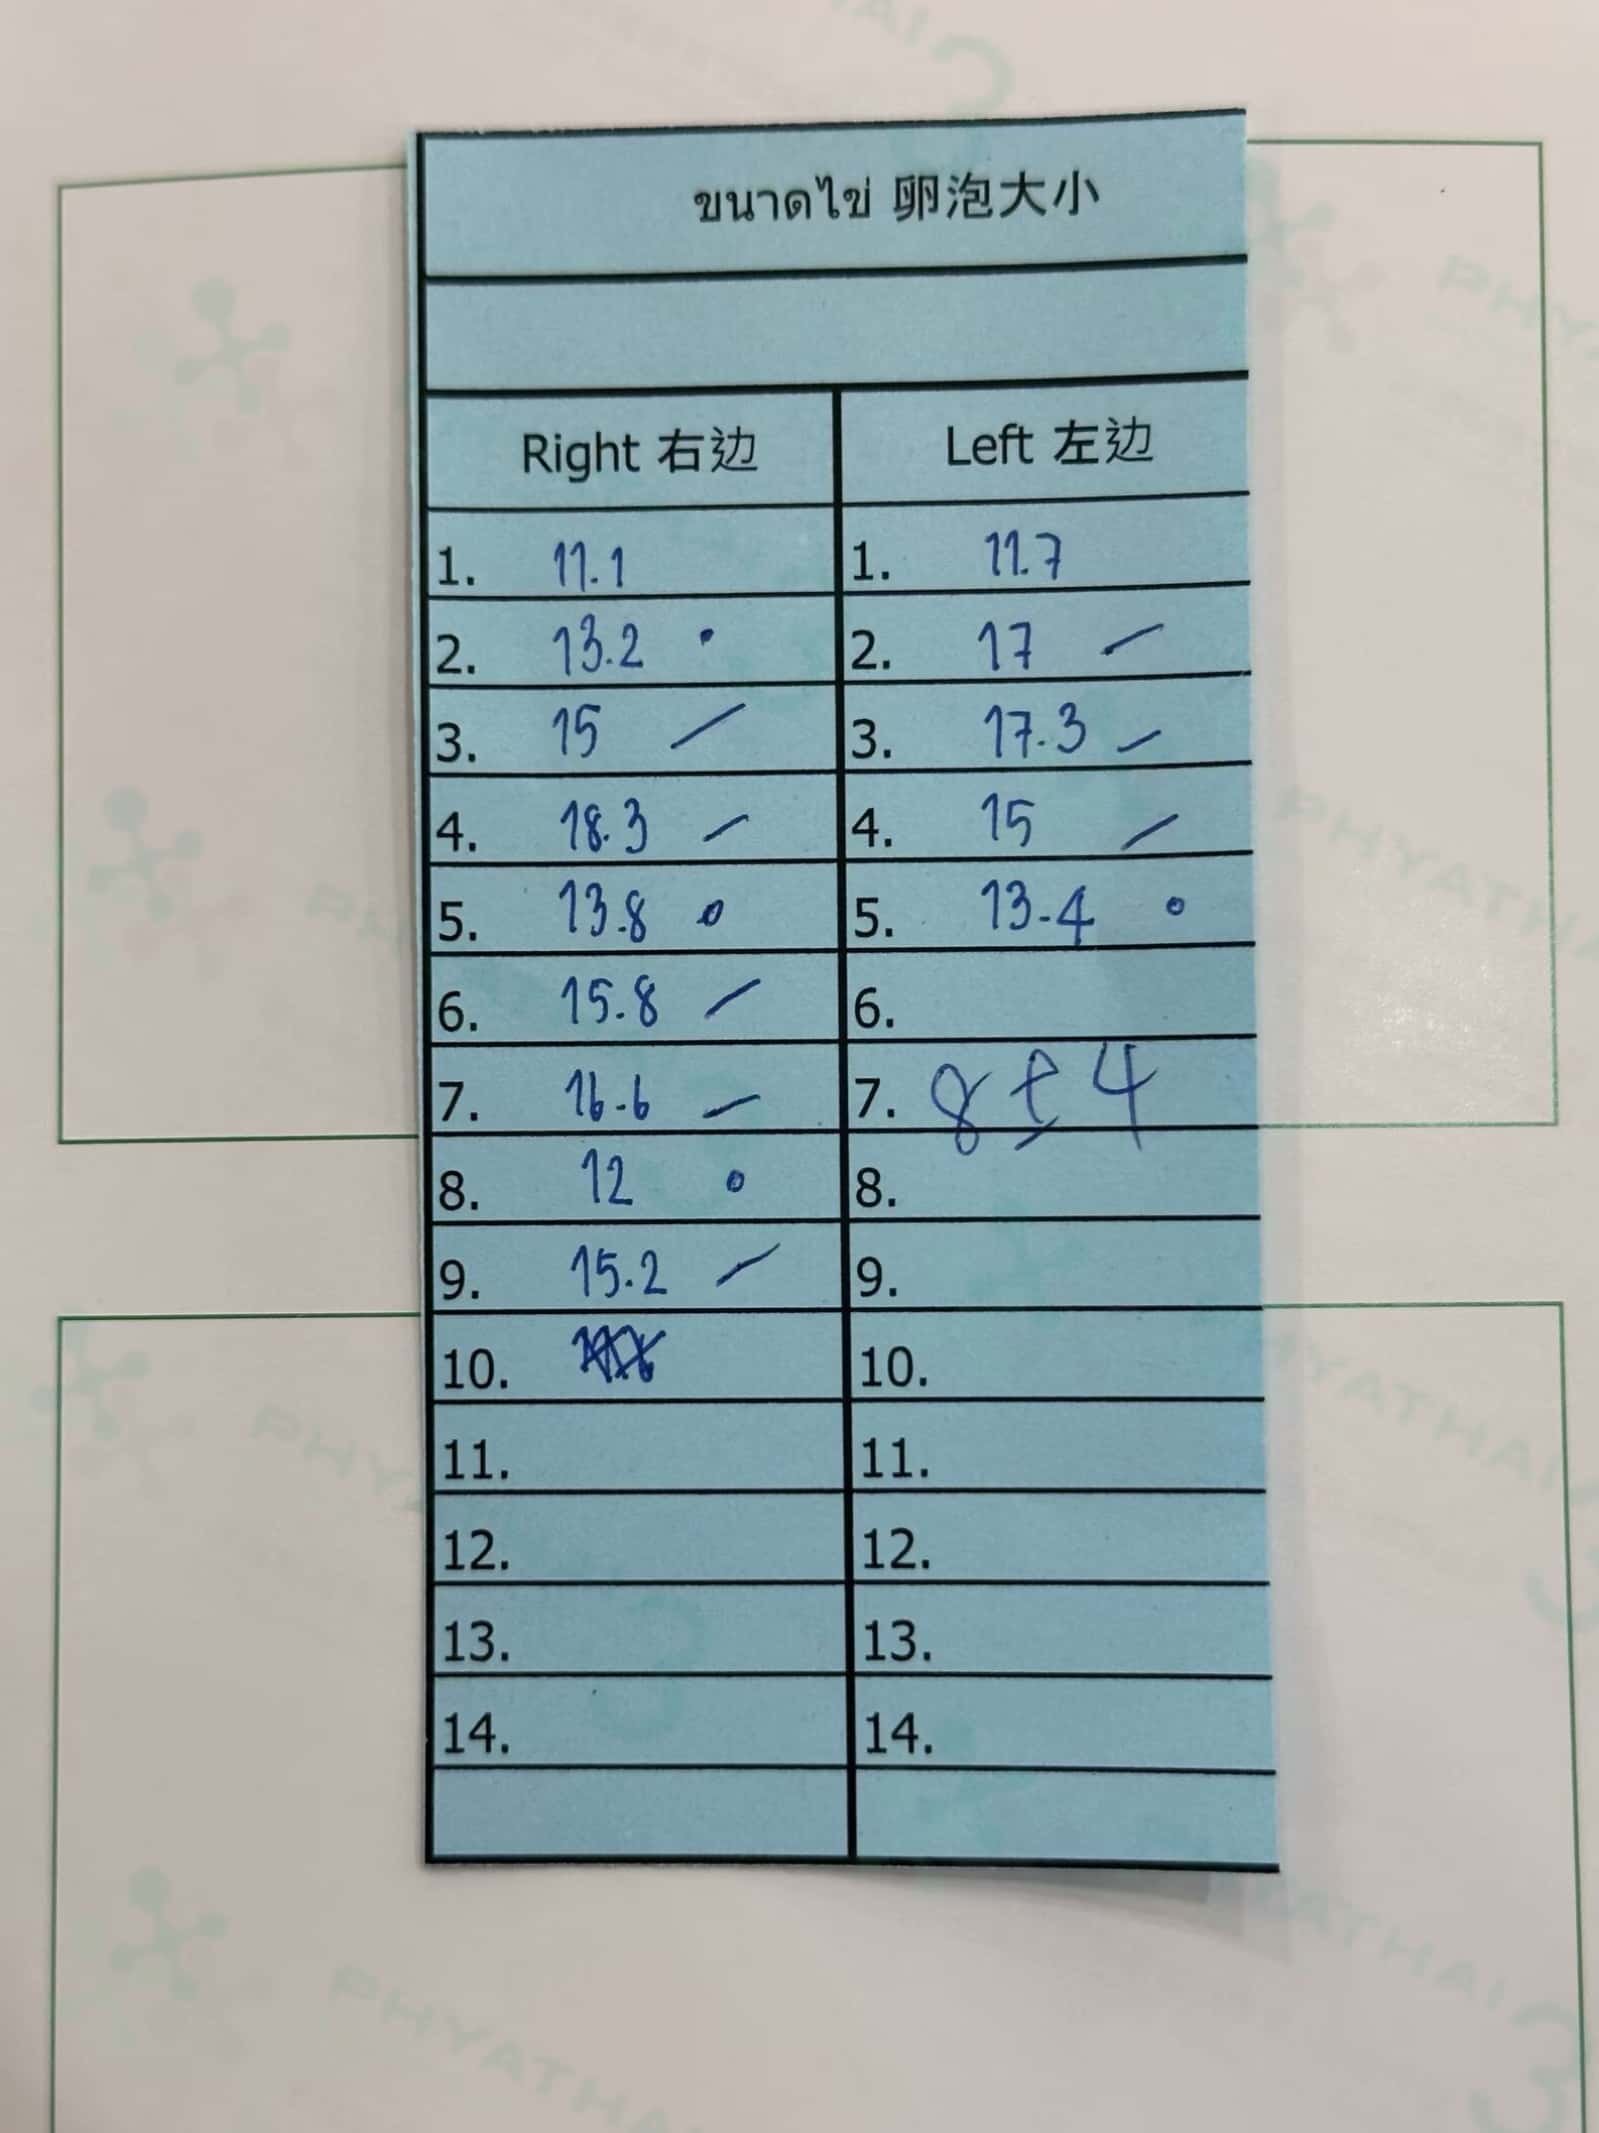 ขนาดไข่ 卵泡大小
Right 右边 Left 左边
1. 11.1 1. 11.7
2. 13.2 2. 17
3. 15 3. 17.3
4. 18.3 4. 15
5. 13.8 5. 13.4
6. 15.8 6.
7. 16.6 7. 8 ± 4
8. 12 8.
9. 15.2 9.
10. 10.
11. 11.
12. 12.
13. 13.
14. 14.